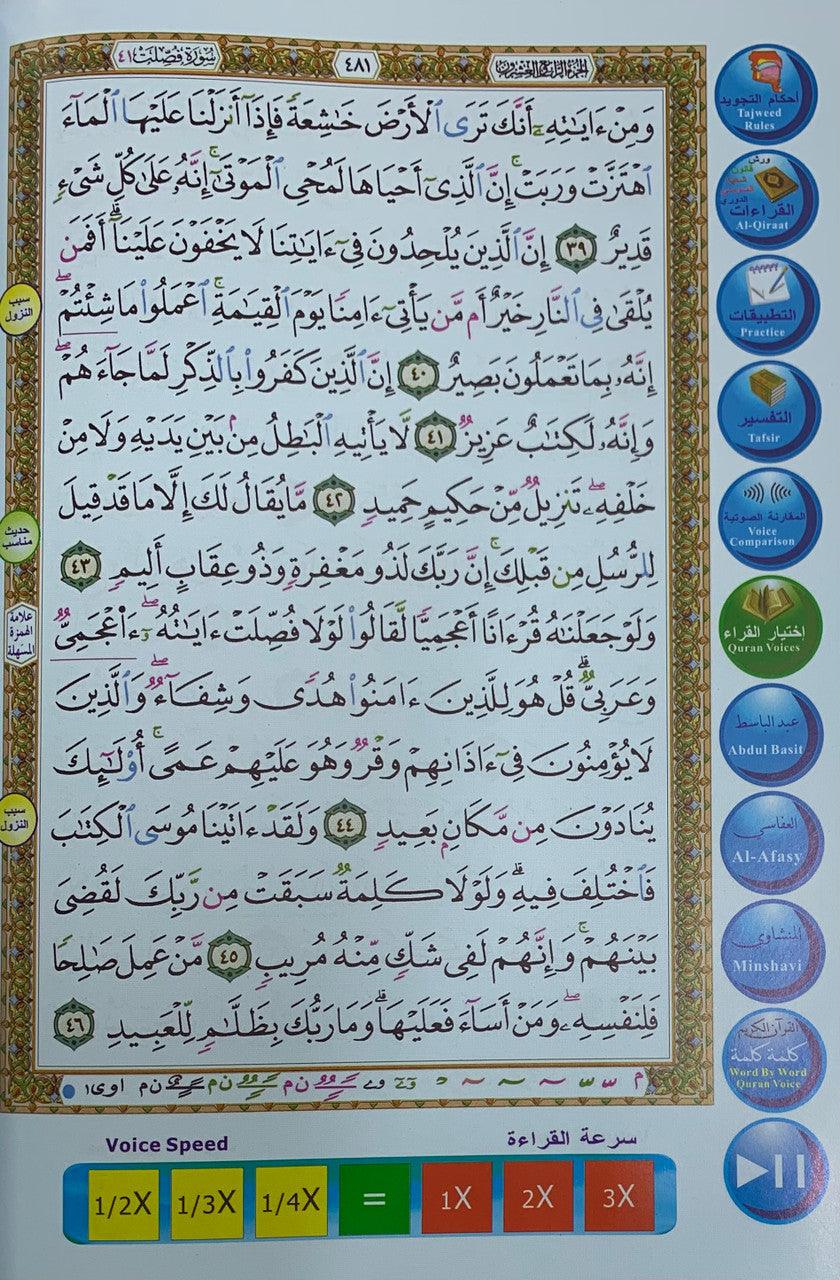 سورة فصلت ٤١
٤٨١
الجزء الرابع والعشرون
وَمِنْ ءَايَٰتِهِۦٓ أَنَّكَ تَرَى ٱلْأَرْضَ خَٰشِعَةً فَإِذَآ أَنزَلْنَا عَلَيْهَا ٱلْمَآءَ
ٱهْتَزَّتْ وَرَبَتْ ۚ إِنَّ ٱلَّذِىٓ أَحْيَاهَا لَمُحْىِ ٱلْمَوْتَىٰٓ ۚ إِنَّهُۥ عَلَىٰ كُلِّ شَىْءٍ
قَدِيرٌ ٣٩ إِنَّ ٱلَّذِينَ يُلْحِدُونَ فِىٓ ءَايَٰتِنَا لَا يَخْفَوْنَ عَلَيْنَآ ۗ أَفَمَن
يُلْقَىٰ فِى ٱلنَّارِ خَيْرٌ أَم مَّن يَأْتِىٓ ءَامِنًا يَوْمَ ٱلْقِيَٰمَةِ ۚ ٱعْمَلُوا۟ مَا شِئْتُمْ ۖ
إِنَّهُۥ بِمَا تَعْمَلُونَ بَصِيرٌ ٤٠ إِنَّ ٱلَّذِينَ كَفَرُوا۟ بِٱلذِّكْرِ لَمَّا جَآءَهُمْ ۖ
وَإِنَّهُۥ لَكِتَٰبٌ عَزِيزٌ ٤١ لَّا يَأْتِيهِ ٱلْبَٰطِلُ مِنۢ بَيْنِ يَدَيْهِ وَلَا مِنْ
خَلْفِهِۦ ۖ تَنزِيلٌ مِّنْ حَكِيمٍ حَمِيدٍ ٤٢ مَّا يُقَالُ لَكَ إِلَّا مَا قَدْ قِيلَ
لِلرُّسُلِ مِن قَبْلِكَ ۚ إِنَّ رَبَّكَ لَذُو مَغْفِرَةٍ وَذُو عِقَابٍ أَلِيمٍ ٤٣
وَلَوْ جَعَلْنَٰهُ قُرْءَانًا أَعْجَمِيًّا لَّقَالُوا۟ لَوْلَا فُصِّلَتْ ءَايَٰتُهُۥٓ ۖ ءَا۬عْجَمِىٌّ
وَعَرَبِىٌّ ۗ قُلْ هُوَ لِلَّذِينَ ءَامَنُوا۟ هُدًى وَشِفَآءٌ ۖ وَٱلَّذِينَ
لَا يُؤْمِنُونَ فِىٓ ءَاذَانِهِمْ وَقْرٌ وَهُوَ عَلَيْهِمْ عَمًى ۚ أُو۟لَٰٓئِكَ
يُنَادَوْنَ مِن مَّكَانٍۭ بَعِيدٍ ٤٤ وَلَقَدْ ءَاتَيْنَا مُوسَى ٱلْكِتَٰبَ
فَٱخْتُلِفَ فِيهِ ۗ وَلَوْلَا كَلِمَةٌ سَبَقَتْ مِن رَّبِّكَ لَقُضِىَ
بَيْنَهُمْ ۚ وَإِنَّهُمْ لَفِى شَكٍّ مِّنْهُ مُرِيبٍ ٤٥ مَّنْ عَمِلَ صَٰلِحًا
فَلِنَفْسِهِۦ ۖ وَمَنْ أَسَآءَ فَعَلَيْهَا ۗ وَمَا رَبُّكَ بِظَلَّٰمٍ لِّلْعَبِيدِ ٤٦
سبب
النزول
حديث
مناسب
علامة
الهمزة
المسهلة
سبب
النزول
أحكام التجويد
Tajweed
Rules
ورش
قالون
الدوري
القراءات
Al-Qiraat
التطبيقات
Practice
التفسير
Tafsir
المقارنة الصوتية
Voice
Comparison
إختيار القراء
Quran Voices
عبد الباسط
Abdul Basit
العفاسي
Al-Afasy
المنشاوي
Minshavi
القرآن الكريم
كلمة كلمة
Word By Word
Quran Voice
Voice Speed
سرعة القراءة
1/2X 1/3X 1/4X = 1X 2X 3X